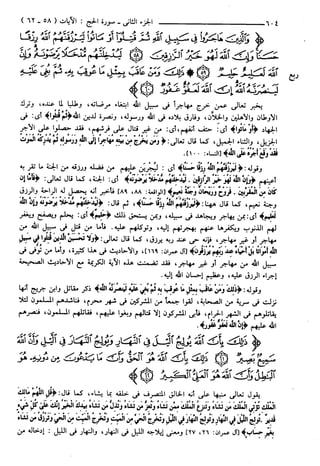 ٦٠٤ الجزء الثاني - سورة الحج : الآيات ( ٥٨ - ٦٢ )
هَاجَرُوا فِي سَبِيلِ اللَّهِ ثُمَّ قُتِلُوا أَوْ مَاتُوا لَيَرْزُقَنَّهُمُ اللَّهُ رِزْقًا
حَسَنًا وَإِنَّ اللَّهَ لَهُوَ خَيْرُ الرَّازِقِينَ ﴿٥٨﴾ لَيُدْخِلَنَّهُم مُّدْخَلًا يَرْضَوْنَهُ وَإِنَّ
اللَّهَ لَعَلِيمٌ حَلِيمٌ ﴿٥٩﴾ ذَلِكَ وَمَنْ عَاقَبَ بِمِثْلِ مَا عُوقِبَ بِهِ ثُمَّ بُغِيَ عَلَيْهِ
لَيَنصُرَنَّهُ اللَّهُ إِنَّ اللَّهَ لَعَفُوٌّ غَفُورٌ
ربع
يخبر تعالى عمن خرج مهاجراً في سبيل الله ابتغاء مرضاته، وطلبا لما عنده، وترك
الأوطان والأهلين والخلان، وفارق بلاده في الله ورسوله، ونصرة لدين الله ﴿ثم قتلوا﴾ أي: في
الجهاد ﴿أو ماتوا﴾ أي: حتف أنفهم، أي: من غير قتال على فرشهم، فقد حصلوا على الأجر
الجزيل، والثناء الجميل، كما قال تعالى: ﴿ومن يخرج من بيته مهاجراً إلى الله ورسوله ثم يدركه الموت
فقد وقع أجره على الله﴾ [النساء: ١٠٠].
وقوله: ﴿ليرزقنهم الله رزقا حسنا﴾ أي: ليجرين عليهم من فضله ورزقه من الجنة ما تقر به
أعينهم ﴿وإن الله لهو خير الرازقين. ليدخلنهم مدخلا يرضونه﴾ أي: الجنة، كما قال تعالى: ﴿فأما إن
كان من المقربين. فروح وريحان وجنة نعيم﴾ [الواقعة: ٨٨، ٨٩] فأخبر أنه يحصل له الراحة والرزق
وجنة نعيم، كما قال ههنا: ﴿ليرزقنهم الله رزقا حسنا﴾، ثم قال: ﴿ليدخلنهم مدخلا يرضونه وإن الله
لعليم﴾ أي: بمن يهاجر ويجاهد في سبيله، وبمن يستحق ذلك ﴿حليم﴾ أي: يحلم ويصفح ويغفر
لهم الذنوب ويكفرها عنهم بهجرتهم إليه، وتوكلهم عليه. فأما من قتل في سبيل الله من
مهاجر أو غير مهاجر، فإنه حي عند ربه يرزق، كما قال تعالى: ﴿ولا تحسبن الذين قتلوا في سبيل
الله أمواتا بل أحياء عند ربهم يرزقون﴾ [آل عمران: ١٦٩]، والأحاديث في هذا كثيرة، وأما من توفى في
سبيل الله من مهاجر أو غير مهاجر، فقد تضمنت هذه الآية الكريمة مع الأحاديث الصحيحة
إجراء الرزق عليه، وعظيم إحسان الله إليه.
وقوله: ﴿ذلك ومن عاقب بمثل ما عوقب به ثم بغي عليه لينصرنه الله﴾ ذكر مقاتل وابن جريج أنها
نزلت في سرية من الصحابة، لقوا جمعاً من المشركين في شهر محرم، فناشدهم المسلمون لئلا
يقاتلوهم في الشهر الحرام، فأبى المشركون إلا قتالهم وبغوا عليهم، فقاتلهم المسلمون، فنصرهم
الله عليهم ﴿إن الله لعفو غفور﴾.
ذَلِكَ بِأَنَّ اللَّهَ يُولِجُ اللَّيْلَ فِي النَّهَارِ وَيُولِجُ النَّهَارَ فِي اللَّيْلِ وَأَنَّ اللَّهَ
سَمِيعٌ بَصِيرٌ ﴿٦١﴾ ذَلِكَ بِأَنَّ اللَّهَ هُوَ الْحَقُّ وَأَنَّ مَا يَدْعُونَ مِن دُونِهِ هُوَ
الْبَاطِلُ وَأَنَّ اللَّهَ هُوَ الْعَلِيُّ الْكَبِيرُ ﴿٦٢﴾
يقول تعالى منبها على أنه الخالق المتصرف في خلقه بما يشاء، كما قال: ﴿قل اللهم مالك
الملك تؤتي الملك من تشاء وتنزع الملك ممن تشاء وتعز من تشاء وتذل من تشاء بيدك الخير إنك على كل شيء
قدير. تولج الليل في النهار وتولج النهار في الليل وتخرج الحي من الميت وتخرج الميت من الحي وترزق من تشاء
بغير حساب﴾ [آل عمران: ٢٦، ٢٧] ومعنى إيلاجه الليل في النهار، والنهار في الليل : إدخاله من